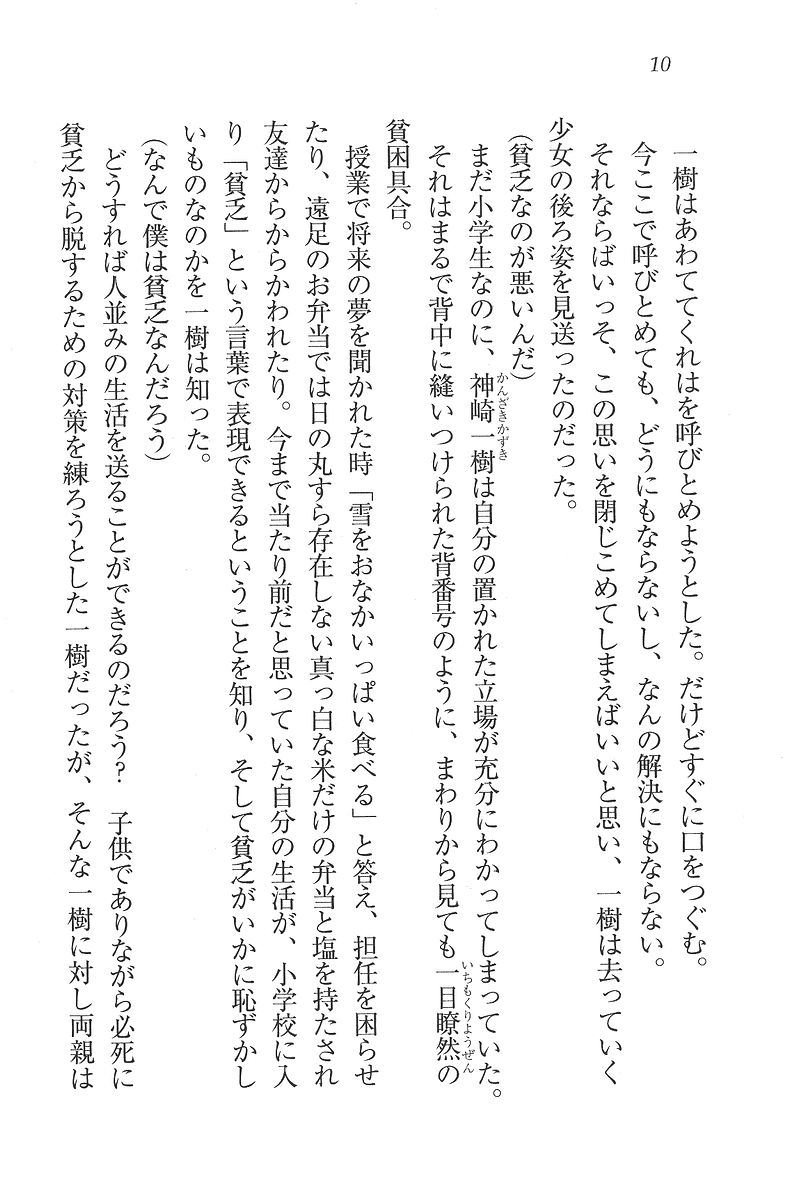 10
一樹はあわててくれはを呼びとめようとした。だけどすぐに口をつぐむ。
今ここで呼びとめても、どうにもならないし、なんの解決にもならない。
それならばいっそ、この思いを閉じこめてしまえばいいと思い、一樹は去っていく
少女の後ろ姿を見送ったのだった。
(貧乏なのが悪いんだ)
まだ小学生なのに、神崎一樹は自分の置かれた立場が充分にわかってしまっていた。
かんざきかずき
それはまるで背中に縫いつけられた背番号のように、まわりから見ても一目瞭然の
いちもくりようぜん
貧困具合。
授業で将来の夢を聞かれた時「雪をおなかいっぱい食べる」と答え、担任を困らせ
たり、遠足のお弁当では日の丸すら存在しない真っ白な米だけの弁当と塩を持たされ
友達からからかわれたり。今まで当たり前だと思っていた自分の生活が、小学校に入
り「貧乏」という言葉で表現できるということを知り、そして貧乏がいかに恥ずかし
いものなのかを一樹は知った。
(なんで僕は貧乏なんだろう)
どうすれば人並みの生活を送ることができるのだろう? 子供でありながら必死に
貧乏から脱するための対策を練ろうとした一樹だったが、そんな一樹に対し両親は